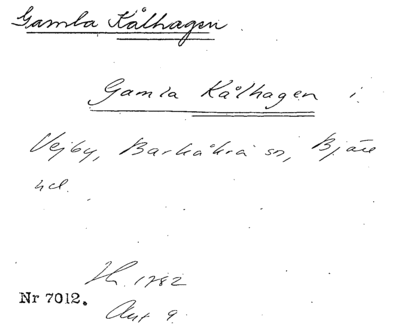 Gamla Kålhagen
Gamla Kålhagen i
Vejby, Barkåkra sn, Bjäre
hd.
Lh. 1782
Nr 7012.
Akt 9.